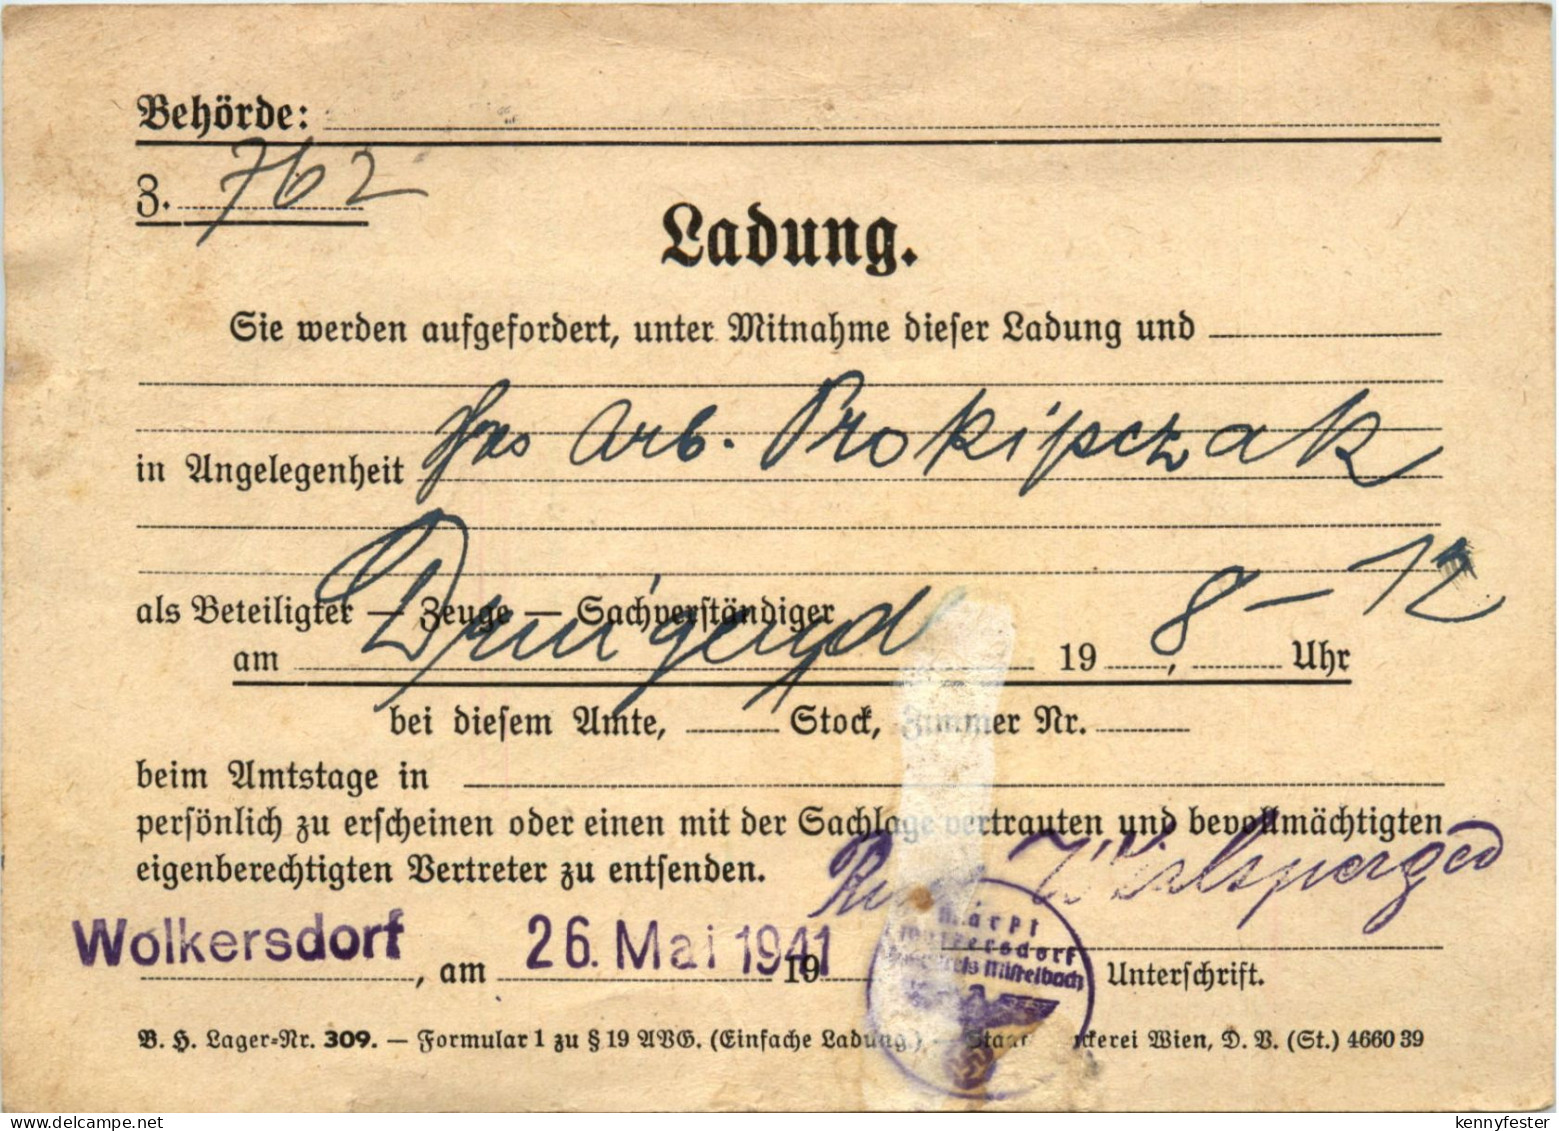 Behörde:
Z. 762
Ladung.
Sie werden aufgefordert, unter Mitnahme dieser Ladung und
in Angelegenheit des Arb. Prokipczak
als Beteiligter — Zeuge — Sachverständiger
Dringend
am 19 , 8-12 Uhr
bei diesem Amte, Stock, Zimmer Nr.
beim Amtstage in
persönlich zu erscheinen oder einen mit der Sachlage vertrauten und bevollmächtigten
eigenberechtigten Vertreter zu entsenden.
Wolkersdorf, am 26. Mai 1941 19
Markt
Wolkersdorf
Mistelbach
Unterschrift.
B. H. Lager-Nr. 309. — Formular 1 zu § 19 AVG. (Einfache Ladung.) — Staatsdruckerei Wien, D. V. (St.) 4660 39
www.delcampe.net
kennyfester